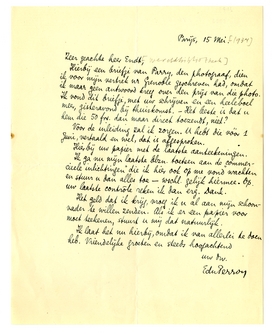 Parijs, 15 Mei (1934)
Zeer geachte heer Endt,
Hierbij een briefje van Parry, den photograaf, dien
ik voor mijn vertrek uit Grenoble geschreven had, omdat
ik maar geen antwoord kreeg over den prijs van die photo.
Ik vond Uw briefje, met uw schrijven en een heeleboel
meer, gisteravond bij thuiskomst. Het beste is dat u
hem die 50 frs. dan maar direct toezendt, niet?
Voor de inleiding zal ik zorgen. U hebt die vóór 1
Juni, vertaald en wel, dat is afgesproken.
Hierbij uw papier met de laatste aanteekeningen.
Ik ga nu mijn laatste blzn. toetsen aan de
inlichtingen die ik hier ook op me vond wachten
en stuur u dan alles toe — wschl. gelijk hiermee. Op
uw laatste controle reken ik dan erg. Dank.
Het geld dat ik krijg, moet ik u al aan mijn schoon-
vader te willen zenden. Als ik er een papier voor
moet teekenen, stuurt u mij dat natuurlijk.
Ik laat het nu hierbij, omdat ik van allerlei te doen
heb. Vriendelijke groeten en steeds hoogachtend
uw dw.
EduPerron